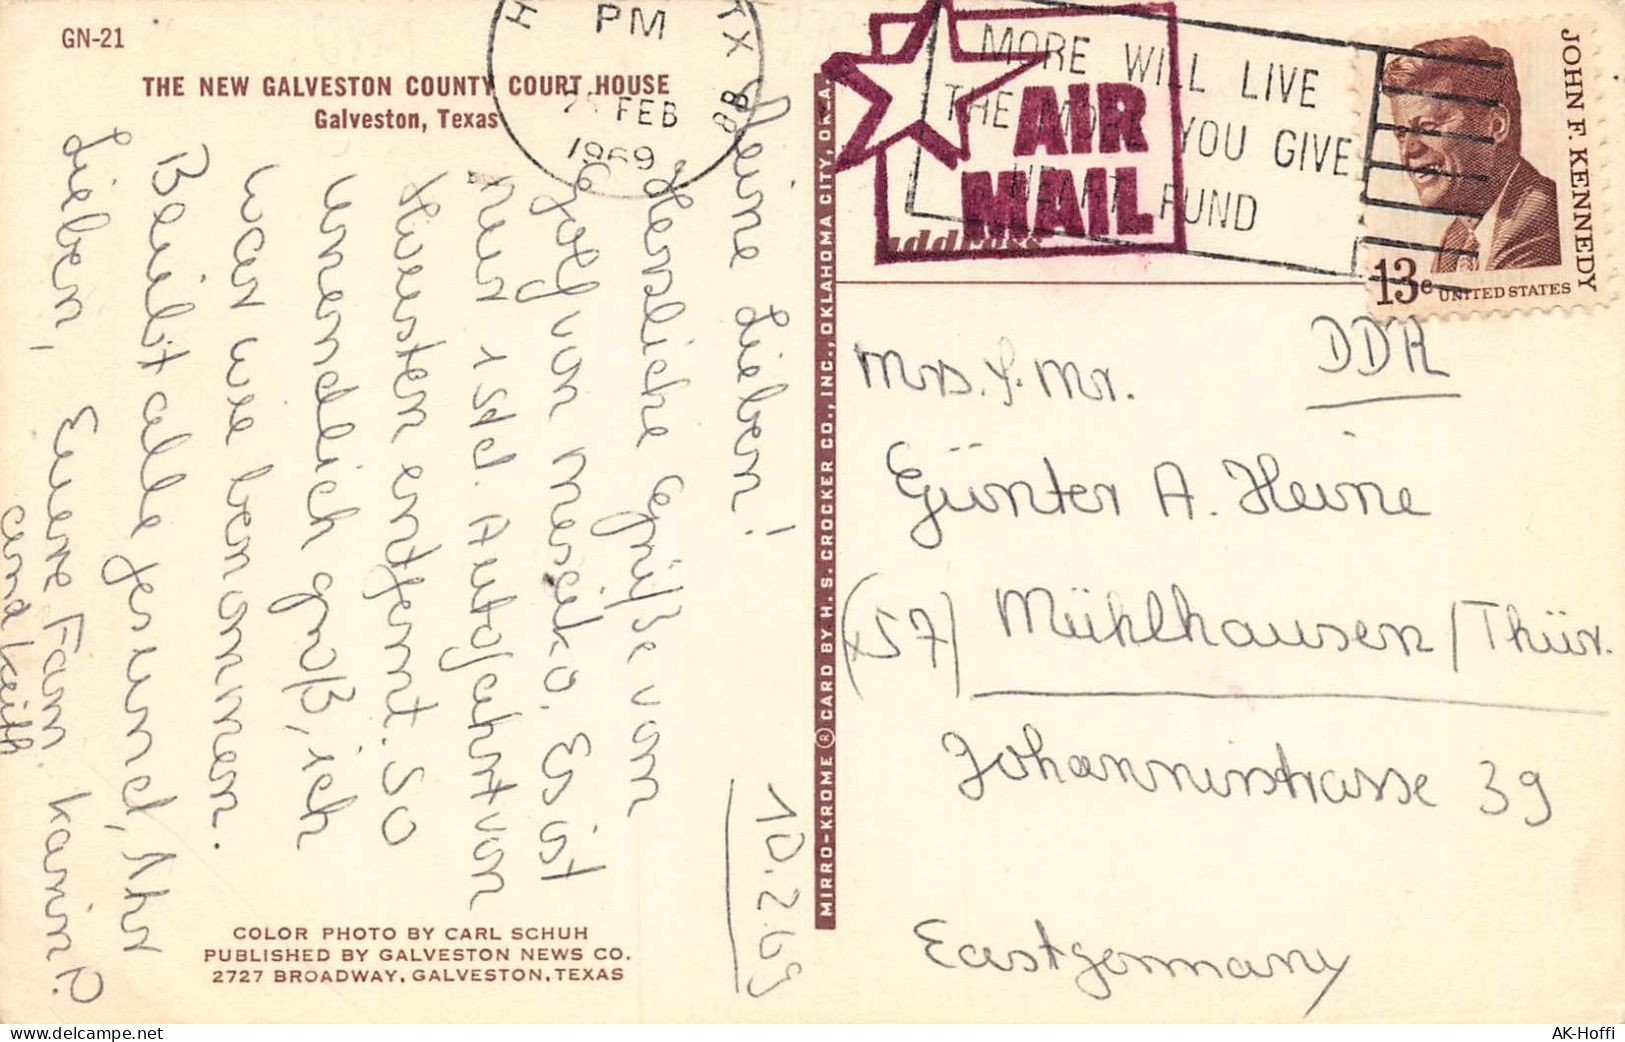 GN-21
THE NEW GALVESTON COUNTY COURT HOUSE
Galveston, Texas
PM
FEB
1969
TX
MORE WILL LIVE
THE MORE YOU GIVE
HEART FUND
AIR
MAIL
address
JOHN F. KENNEDY
13c UNITED STATES
10.2.69
Meine Lieben!
Herzliche Grüße vom
Golf von Mexiko. Es ist
nur 1 Std. Autofahrt von
Houston entfernt. So
unendlich groß, ich
war wie benommen.
Bleibt alle gesund, Ihr
Lieben, Euere Fam. Karin P.
und Keith
MIRRO-KROME ® CARD BY H. S. CROCKER CO., INC., OKLAHOMA CITY, OKLA.
DDR
Mrs. & Mr.
Günter A. Heine
(57) Mühlhausen/Thür.
Johannisstrasse 39
Eastgermany
COLOR PHOTO BY CARL SCHUH
PUBLISHED BY GALVESTON NEWS CO.
2727 BROADWAY, GALVESTON, TEXAS
www.delcampe.net
AK-Hoffi